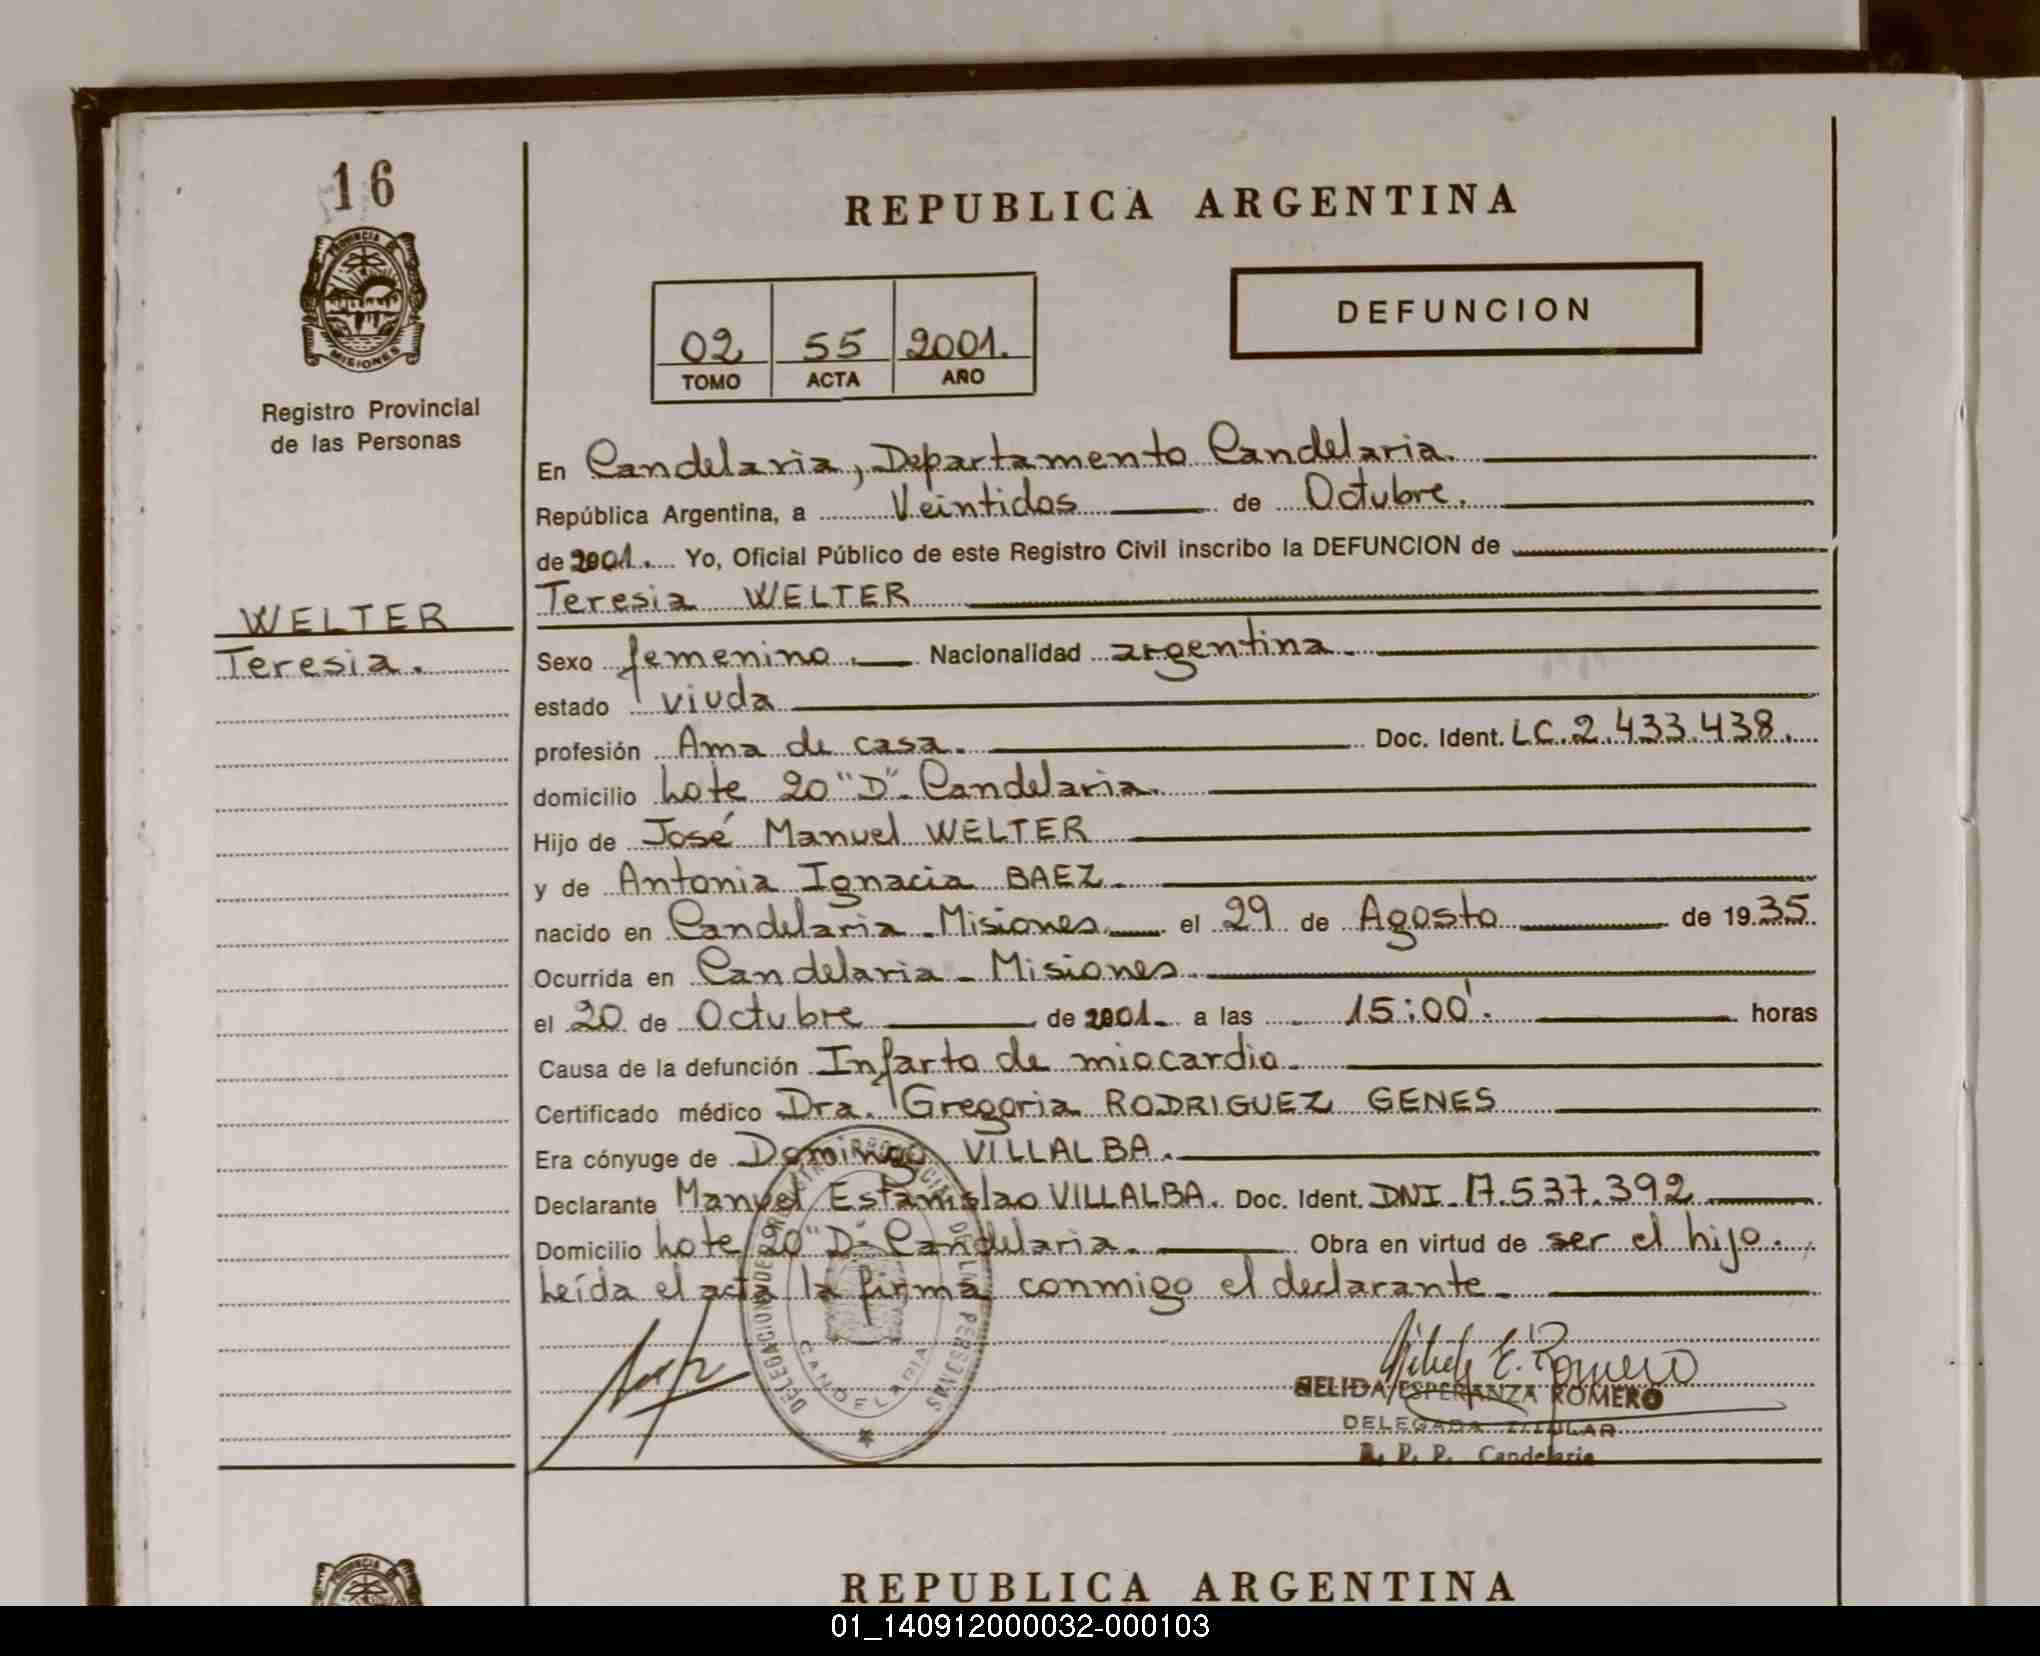 16
PROVINCIA DE
MISIONES
Registro Provincial
de las Personas
WELTER
Teresia.
REPUBLICA ARGENTINA
02 55 2001.
TOMO ACTA AÑO
DEFUNCION
En Candelaria, Departamento Candelaria.
República Argentina, a Veintidos de Octubre.
de 2001. Yo, Oficial Público de este Registro Civil inscribo la DEFUNCION de
Teresia WELTER
Sexo femenino. Nacionalidad argentina.
estado viuda
profesión Ama de casa. Doc. Ident. LC. 2.433.438.
domicilio Lote 20 "D"- Candelaria.
Hijo de José Manuel WELTER
y de Antonia Ignacia BAEZ.
nacido en Candelaria - Misiones. el 29 de Agosto de 1935.
Ocurrida en Candelaria - Misiones
el 20 de Octubre de 2001. a las 15:00'. horas
Causa de la defunción Infarto de miocardio.
Certificado médico Dra. Gregoria RODRIGUEZ GENES
Era cónyuge de Domingo VILLALBA.
Declarante Manuel Estanislao VILLALBA. Doc. Ident. DNI. 17.537.392
Domicilio Lote 20 "D"- Candelaria. Obra en virtud de ser el hijo.
Leída el acta la firma conmigo el declarante.
CANDELARIA
E. Romero
NELIDA ESPERANZA ROMERO
DELEGADA TITULAR
R. P. P. Candelaria
PROVINCIA DE
REPUBLICA ARGENTINA
01_140912000032-000103